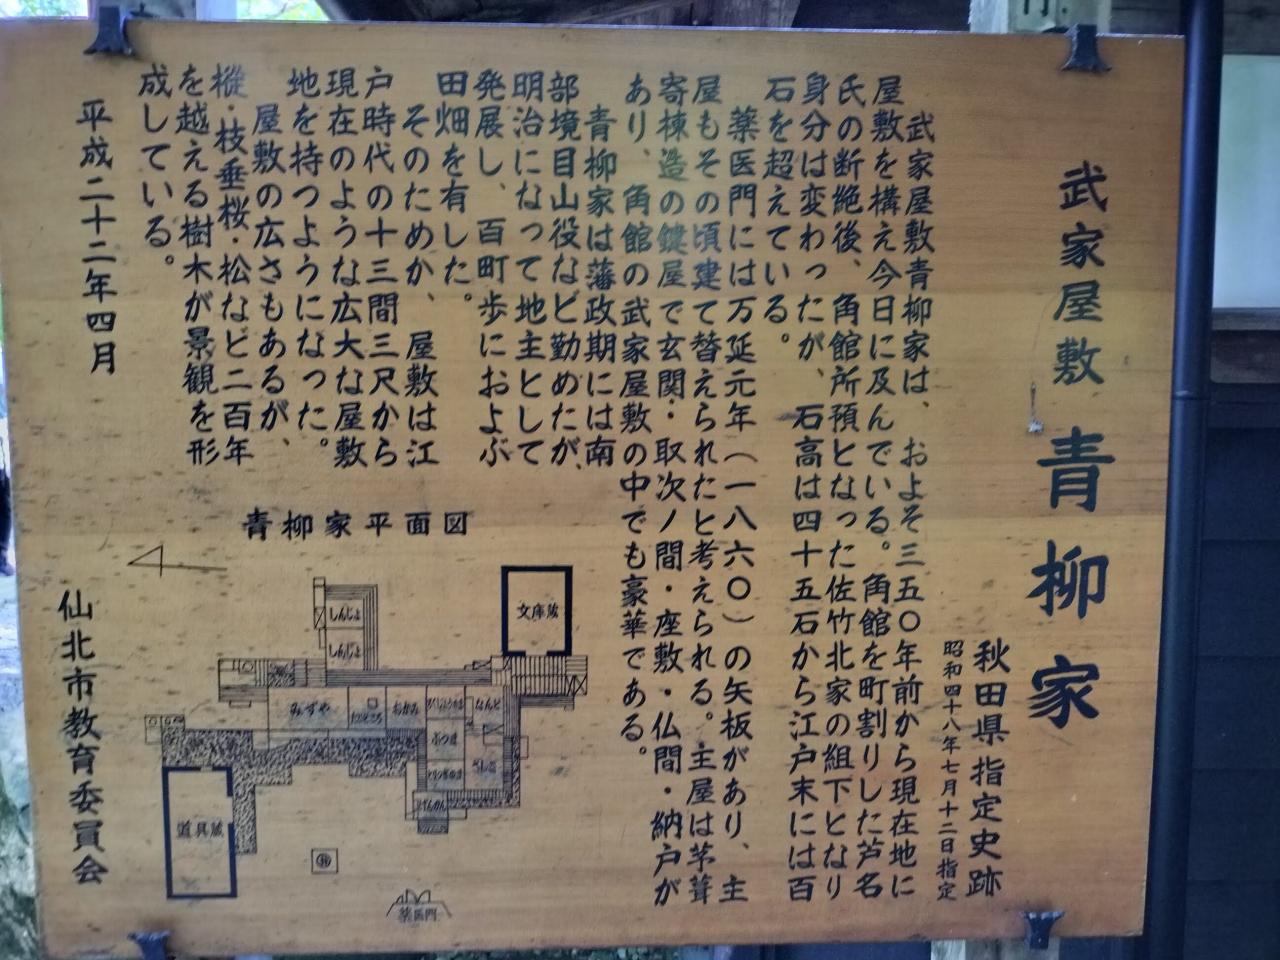 武家屋敷 青柳家
秋田県指定史跡
昭和四十八年七月十二日指定
武家屋敷青柳家は、およそ三五〇年前から現在地に
屋敷を構え今日に及んでいる。角館を町割りした芦名
氏の断絶後、角館所預となった佐竹北家の組下となり
身分は変わったが、石高は四十五石から江戸末には百
石を超えている。
薬医門には万延元年(一八六〇)の矢板があり、主
屋もその頃建て替えられたと考えられる。主屋は茅葺
寄棟造の鍵屋で玄関・取次ノ間・座敷・仏間・納戸が
あり、角館の武家屋敷の中でも豪華である。
青柳家は藩政期には南
部境目山役など勤めたが、
明治になって地主として
発展し、百町歩におよぶ
田畑を有した。
そのためか、屋敷は江
戸時代の十三間三尺から
現在のような広大な屋敷
地を持つようになった。
屋敷の広さもあるが、
樅・枝垂桜・松など二百年
を越える樹木が景観を形
成している。
平成二十二年四月
仙北市教育委員会
青柳家平面図
文庫蔵
しんじょ
しんじょ
みずや
だいどころ
おかみ
なんど
ぶつま
ざしき
とりつぎのま
げんかん
道具蔵
薬医門